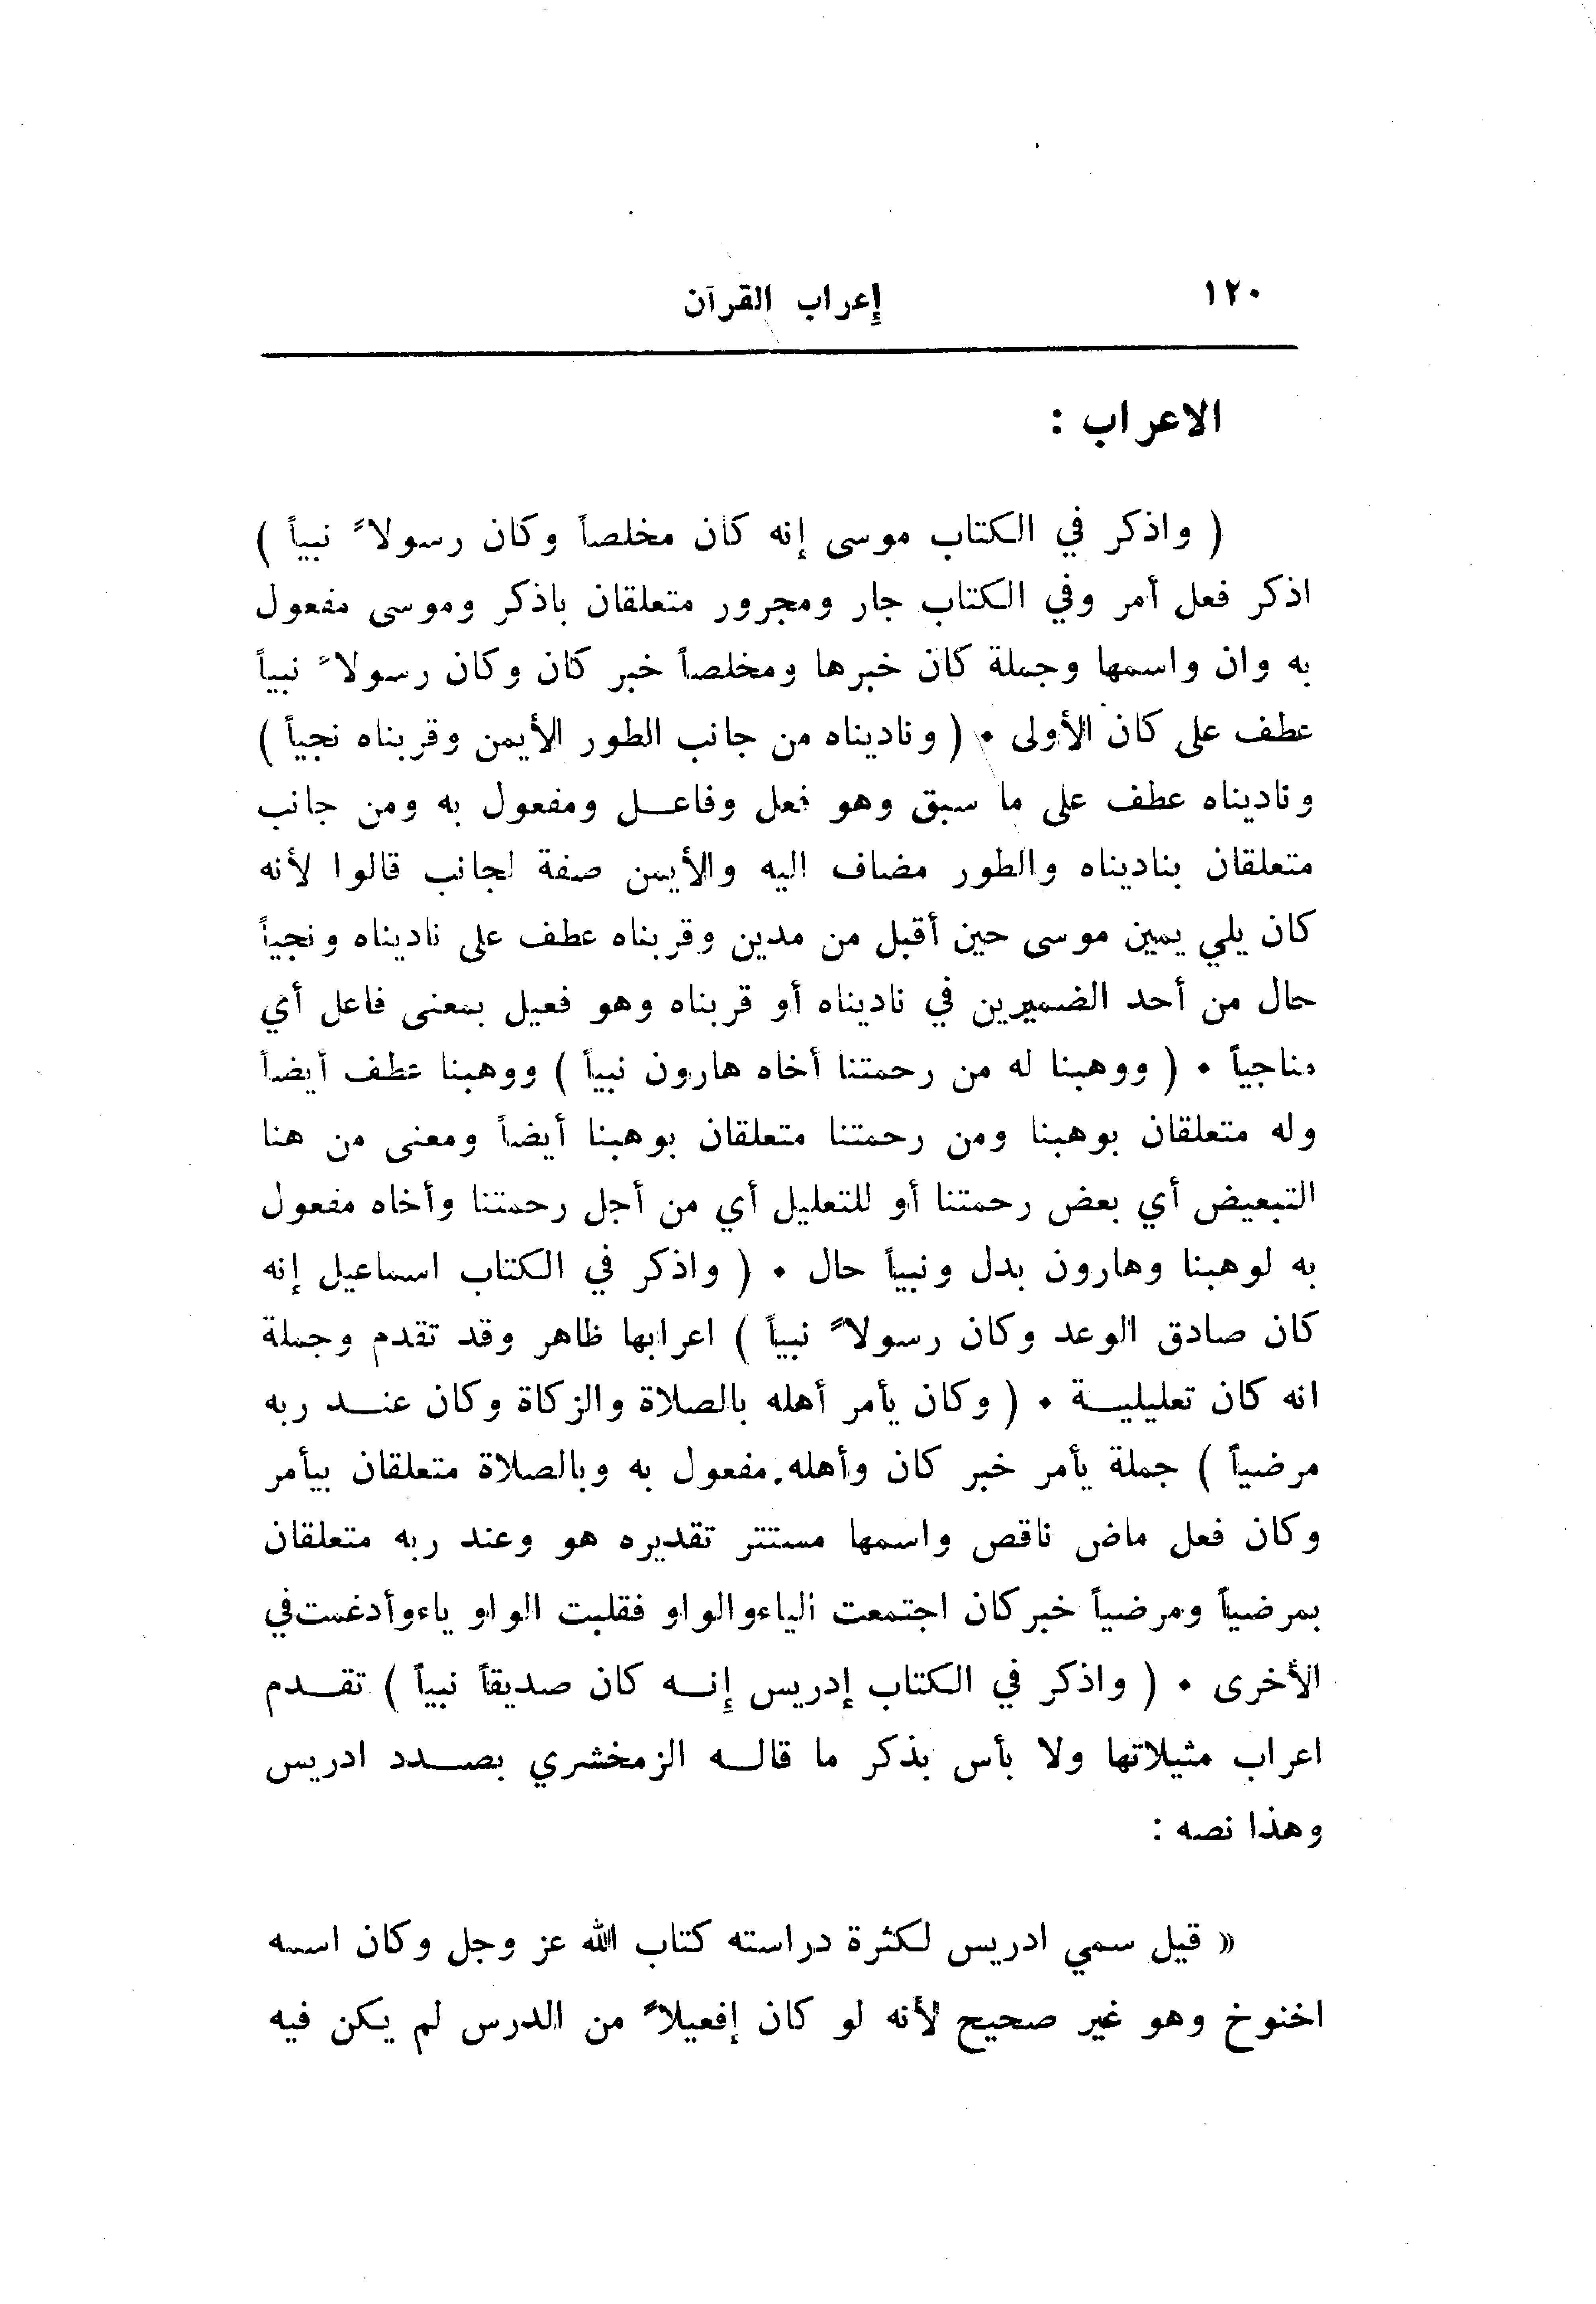 ١٢٠ إعراب القرآن
الاعراب :
( واذكر في الكتاب موسى إنه كان مخلصاً وكان رسولاً نبياً )
اذكر فعل أمر وفي الكتاب جار ومجرور متعلقان باذكر وموسى مفعول
به وان واسمها وجملة كان خبرها ومخلصاً خبر كان وكان رسولاً نبياً
عطف على كان الأولى . ( وناديناه من جانب الطور الأيمن وقربناه نجياً )
وناديناه عطف على ما سبق وهو فعل وفاعل ومفعول به ومن جانب
متعلقان بناديناه والطور مضاف اليه والأيمن صفة لجانب قالوا لأنه
كان يلي يمين موسى حين أقبل من مدين وقربناه عطف على ناديناه ونجياً
حال من أحد الضميرين في ناديناه أو قربناه وهو فعيل بمعنى فاعل أي
مناجياً . ( ووهبنا له من رحمتنا أخاه هارون نبياً ) ووهبنا عطف أيضاً
وله متعلقان بوهبنا ومن رحمتنا متعلقان بوهبنا أيضاً ومعنى من هنا
التبعيض أي بعض رحمتنا أو للتعليل أي من أجل رحمتنا وأخاه مفعول
به لوهبنا وهارون بدل ونبياً حال . ( واذكر في الكتاب اسماعيل إنه
كان صادق الوعد وكان رسولاً نبياً ) اعرابها ظاهر وقد تقدم وجملة
انه كان تعليلية . ( وكان يأمر أهله بالصلاة والزكاة وكان عند ربه
مرضياً ) جملة يأمر خبر كان وأهله.مفعول به وبالصلاة متعلقان بيأمر
وكان فعل ماض ناقص واسمها مستتر تقديره هو وعند ربه متعلقان
بمرضياً ومرضياً خبر كان اجتمعت الياء والواو فقلبت الواو ياء وأدغمت في
الأخرى . ( واذكر في الكتاب إدريس إنه كان صديقاً نبياً ) تقدم
اعراب مثيلاتها ولا بأس بذكر ما قاله الزمخشري بصدد ادريس
وهذا نصه :
« قيل سمي ادريس لكثرة دراسته كتاب الله عز وجل وكان اسمه
اخنوخ وهو غير صحيح لأنه لو كان إفعيلاً من الدرس لم يكن فيه